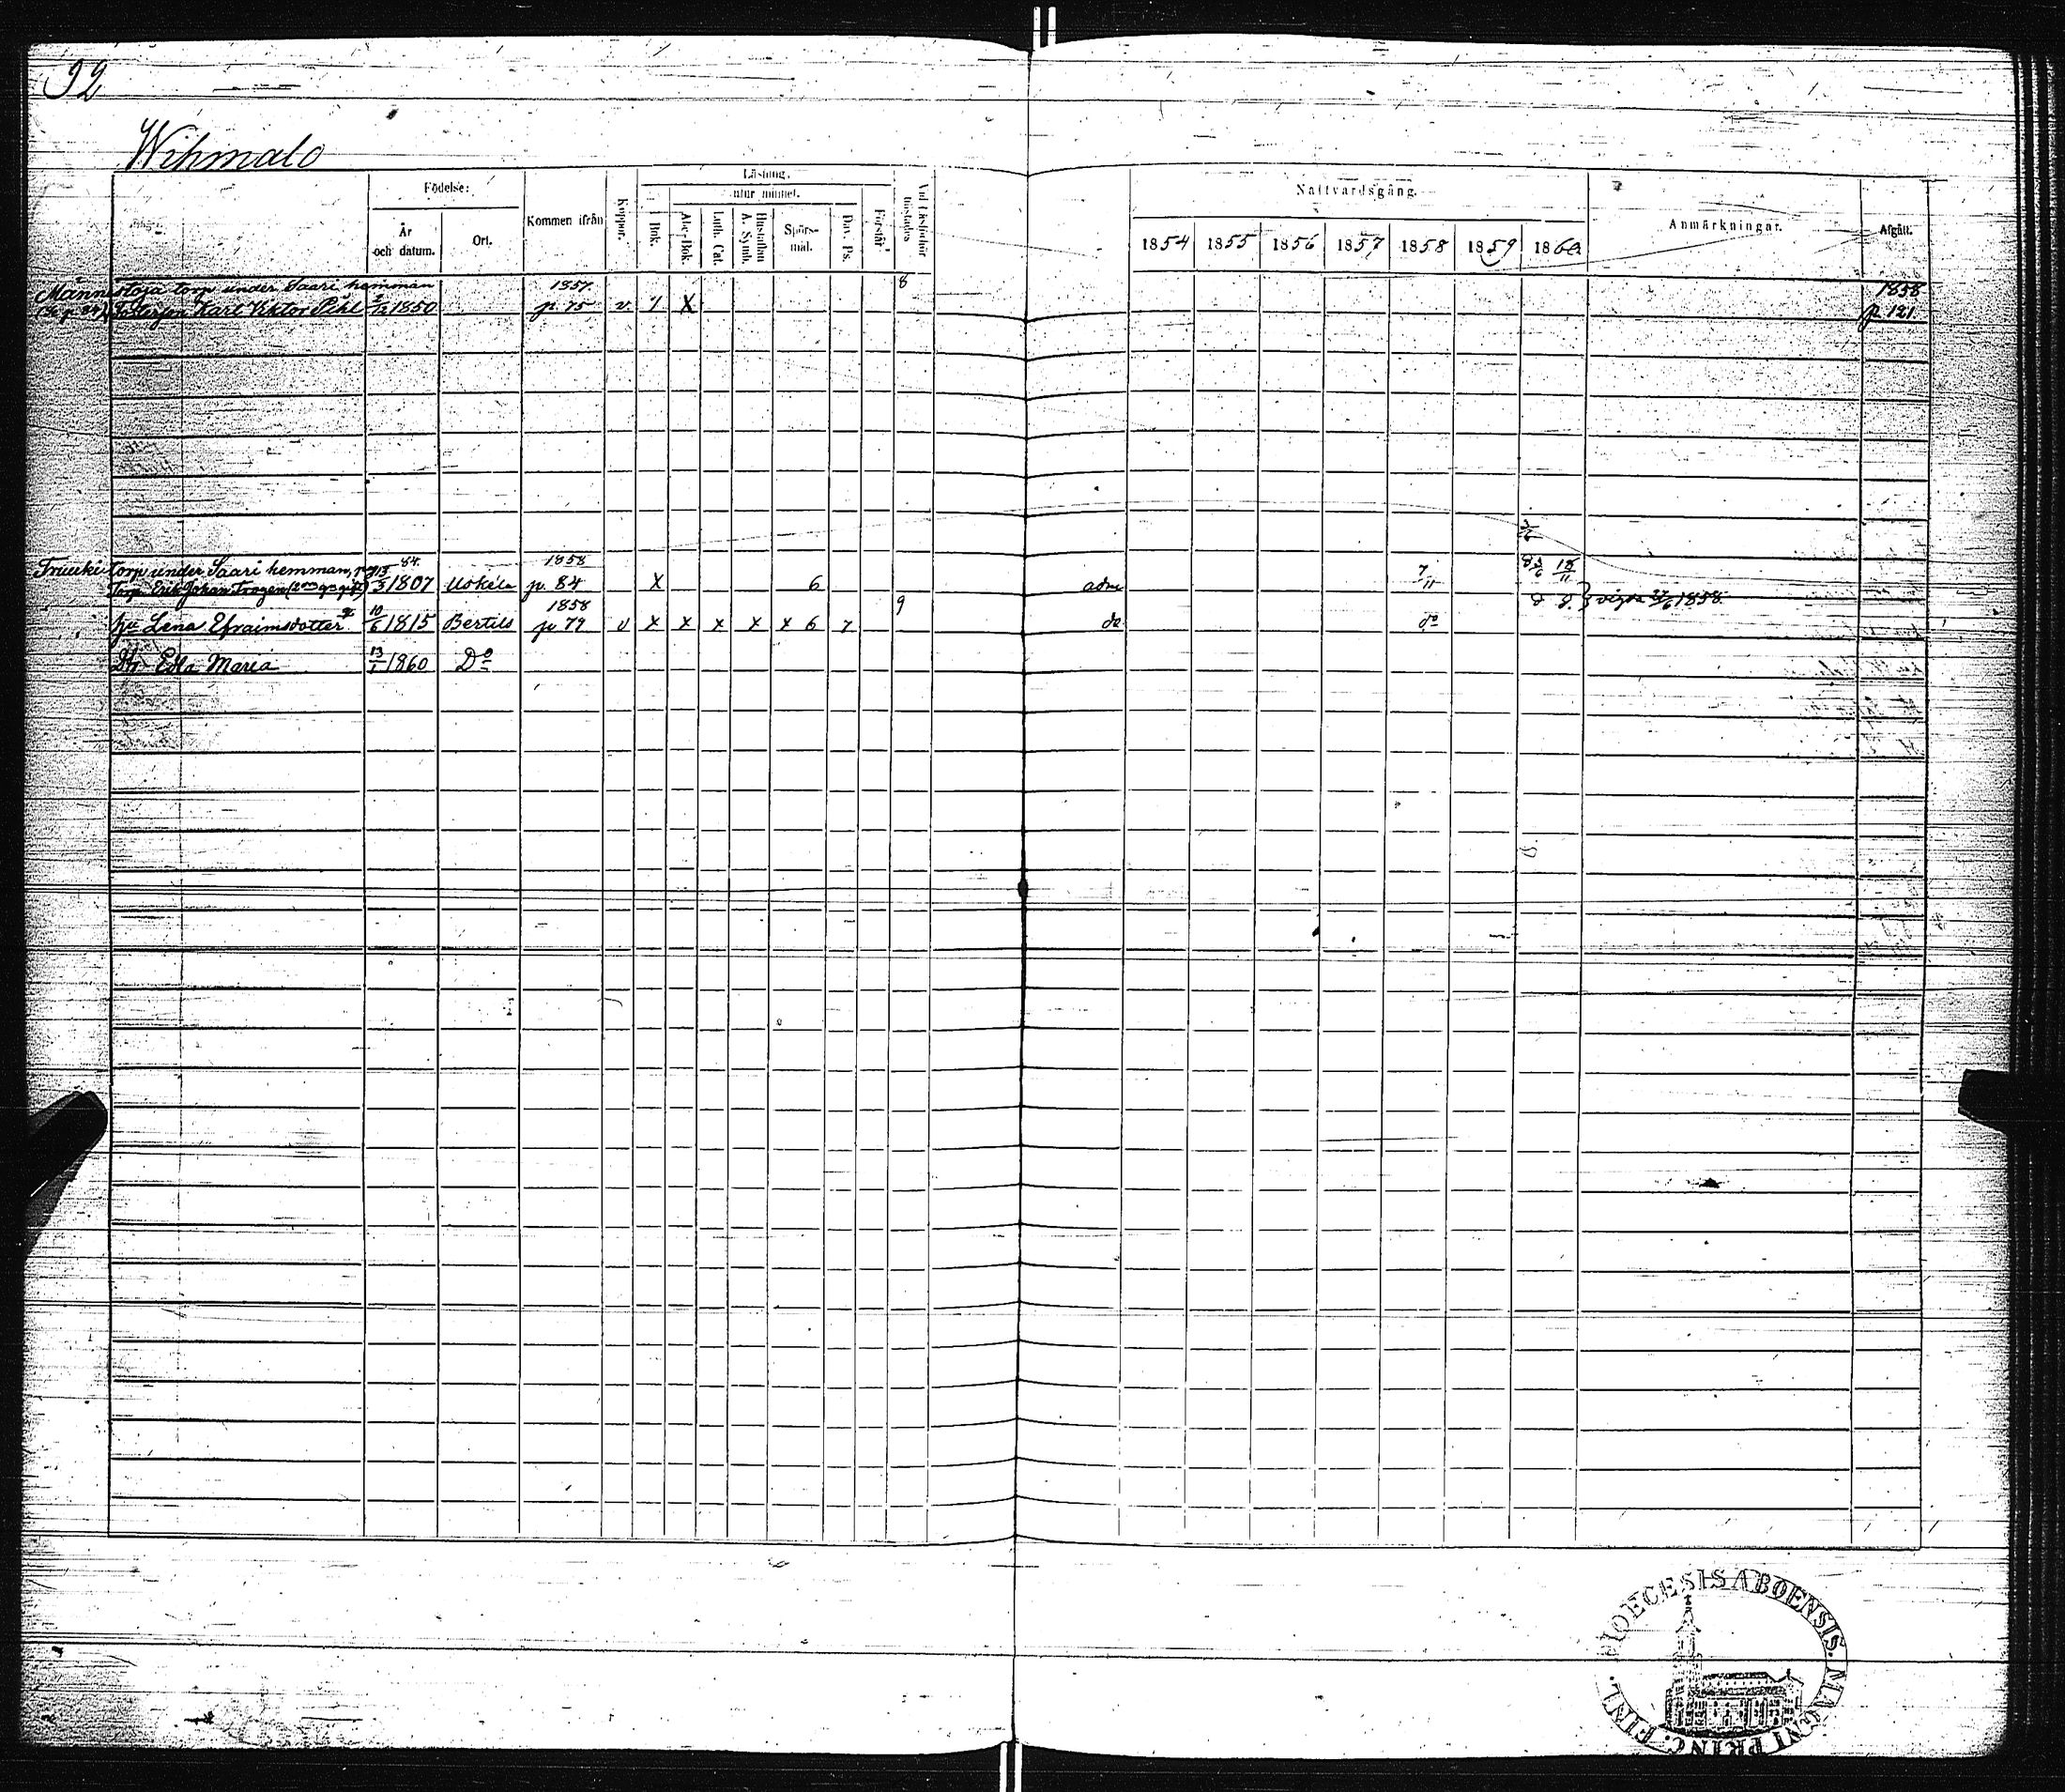 92
Wihmalo
Födelse:
År och datum.
Ort.
Kommen ifrån
Koppor.
Läsning.
I Bok.
utur minnet.
Abc-Bok.
Luth. Cat.
Hustaflan A. Symb.
Spörs-mål.
Dav. Ps.
Förstår
Vid Läsförhör
Nattvardsgång.
1854 1855 1856 1857 1858 1859 1860
Anmärkningar.
Afgått.
torp under Saari hemman 1857. 8 1858
Karl Viktor Pihl 1850 p. 75 v. X p. 121
torp under Saari hemman, 84. 1858
Torp. Erik Johan Trogen 1807 Uskela p. 84 X 6 adm 7/11
1858 9 vigda 1858
hu Lena Efraimsdotter 10/6 1815 Bertils p. 79 v x x x x x 6 7 do do
Dtr Edla Maria 13/1 1860 Do
DIOECESIS ABOENSIS. MAGNI PRINC. FINL.